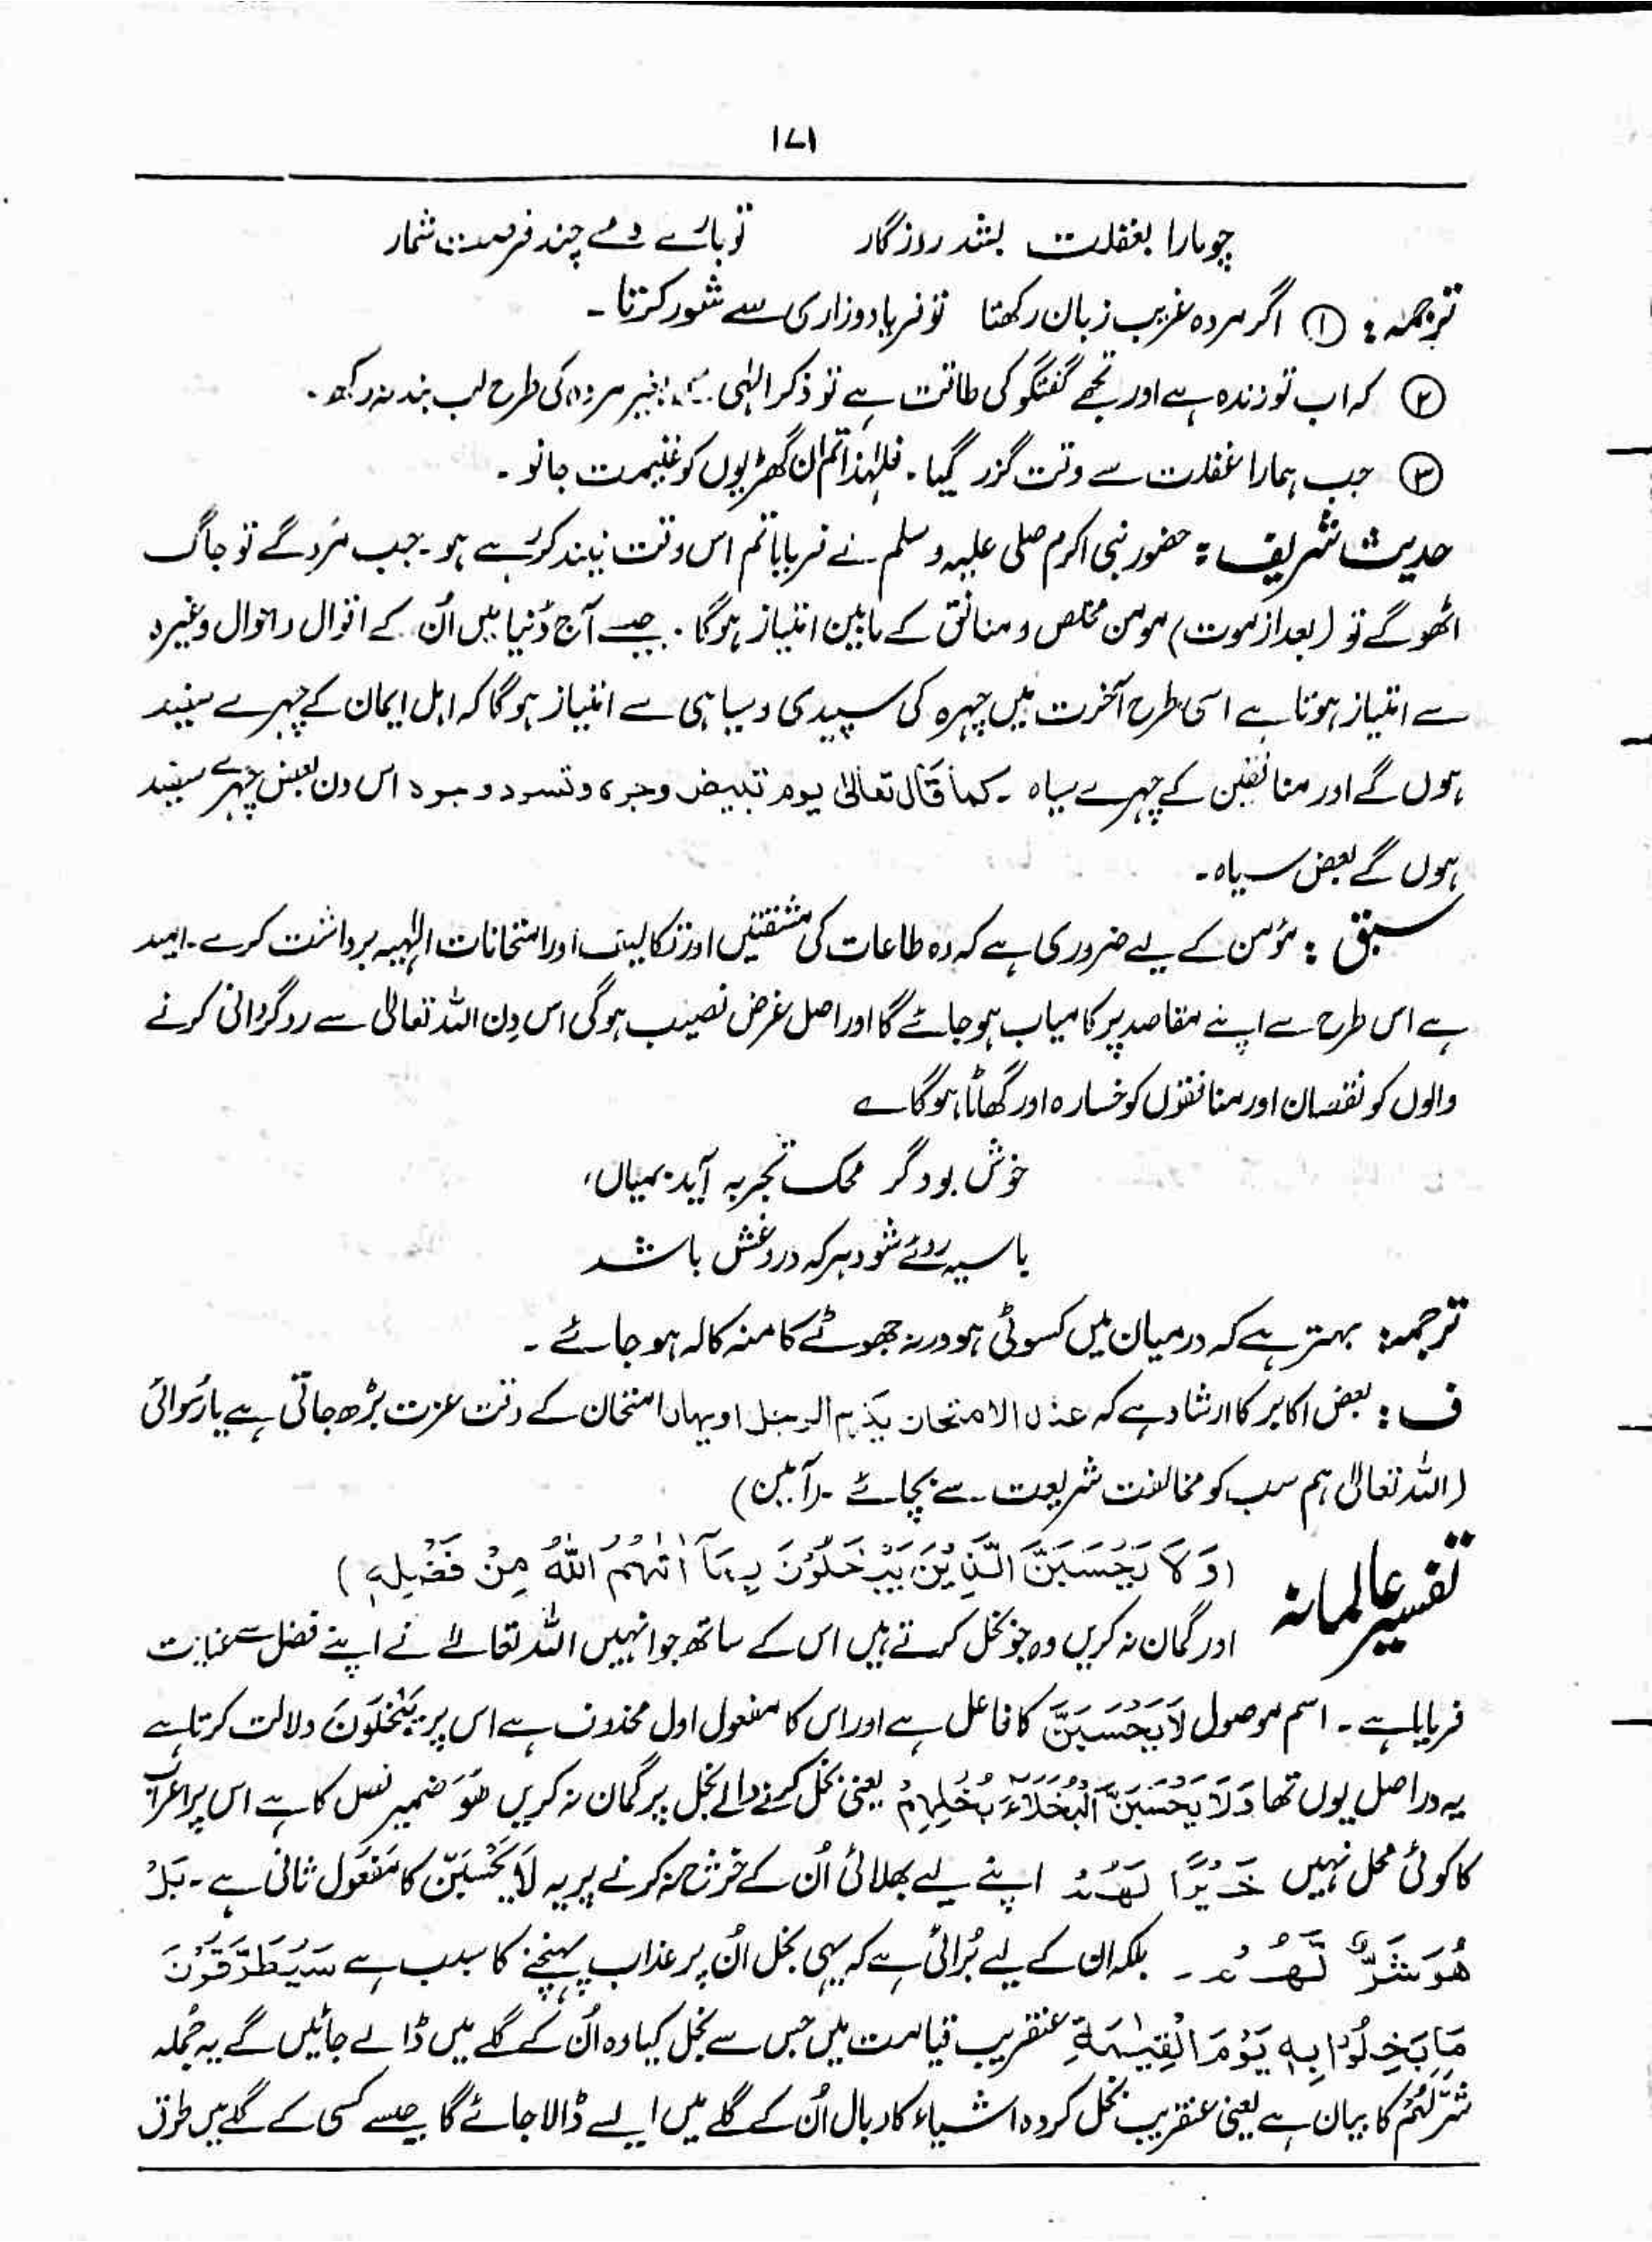 ۱۷۱
چو مارا بغفلت بشد روزگار تو بارے دمے چند فرصت شمار
ترجمہ: ① اگر مردہ غریب زبان رکھتا تو فریاد و زاری سے شور کرتا ۔
② کہ اب تو زندہ ہے اور تجھے گفتگو کی طاقت ہے تو ذکر الٰہی کے بغیر مردہ کی طرح لب بند نہ رکھ ۔
③ جب ہمارا غفلت سے وقت گزر گیا ۔ فلہٰذا تم ان گھڑیوں کو غنیمت جانو ۔
حدیث شریف : حضور نبی اکرم صلی علیہ وسلم نے فرمایا تم اس وقت نیند کر رہے ہو ۔ جب مَرو گے تو جاگ
اٹھو گے تو (بعد از موت) مومن مخلص و منافق کے مابین امتیاز ہوگا ۔ جیسے آج دُنیا میں اُن کے اقوال و احوال وغیرہ
سے امتیاز ہوتا ہے اسی طرح آخرت میں چہرہ کی سپیدی و سیاہی سے امتیاز ہوگا کہ اہل ایمان کے چہرے سفید
ہوں گے اور منافقین کے چہرے سیاہ ۔ کما قال تعالیٰ یوم تبیض وجوہ و تسود وجوہ اس دن بعض چہرے سفید
ہوں گے بعض سیاہ ۔
سبق : مؤمن کے لیے ضروری ہے کہ وہ طاعات کی مشقتیں اور تکالیف اور امتحانات الٰہیہ برداشت کرے ۔ امید
ہے اس طرح سے اپنے مقاصد پر کامیاب ہو جائے گا اور اصل غرض نصیب ہوگی اس دِن اللہ تعالیٰ سے روگردانی کرنے
والوں کو نقصان اور منافقوں کو خسارہ اور گھاٹا ہوگا ے
خوش بود گر محک تجربہ آید بمیاں ،
یا سیہ روئے شود ہر کہ دروغش باشد
ترجمہ: بہتر ہے کہ درمیان میں کسوٹی ہو ورنہ جھوٹے کا منہ کالا ہو جائے ۔
ف : بعض اکابر کا ارشاد ہے کہ عند الامتحان یکرم الرجل او یہان امتحان کے وقت عزت بڑھ جاتی ہے یا رُسوائی
(اللہ تعالیٰ ہم سب کو مخالفت شریعت سے بچائے ۔ (آمین)
تفسیر عالمانہ (وَلَا يَحْسَبَنَّ الَّذِيْنَ يَبْخَلُوْنَ بِمَآ اٰتٰهُمُ اللّٰهُ مِنْ فَضْلِهٖ)
اور گمان نہ کریں وہ جو بخل کرتے ہیں اس کے ساتھ جو انہیں اللہ تعالےٰ نے اپنے فضل سے عنایت
فرمایا ہے ۔ اسم موصول لَا يَحْسَبَنَّ کا فاعل ہے اور اس کا مفعول اول محذوف ہے اس پر يَبْخَلُوْنَ دلالت کرتا ہے
یہ دراصل یوں تھا وَلَا يَحْسَبَنَّ الْبُخَلَآءُ بُخْلَهُمْ یعنی بخل کرنے والے بخل پر گمان نہ کریں هُوَ ضمیر فصل کا ہے اس پر اعراب
کا کوئی محل نہیں خَيْرًا لَّهُمْ اپنے لیے بھلائی اُن کے خرچ نہ کرنے پر یہ لَا يَحْسَبَنَّ کا مفعول ثانی ہے ۔ بَلْ
هُوَ شَرٌّ لَّهُمْ ۔ بلکہ ان کے لیے بُرائی ہے کہ یہی بخل اُن پر عذاب پہنچنے کا سبب ہے سَيُطَوَّقُوْنَ
مَا بَخِلُوْا بِهٖ يَوْمَ الْقِيٰمَةِ عنقریب قیامت میں جس سے بخل کیا وہ اُن کے گلے میں ڈالے جائیں گے یہ جُملہ
شَرٌّ لَّهُمْ کا بیان ہے یعنی عنقریب بخل کردہ اشیاء کا وبال اُن کے گلے میں ایسے ڈالا جائے گا جیسے کسی کے گلے میں طوق